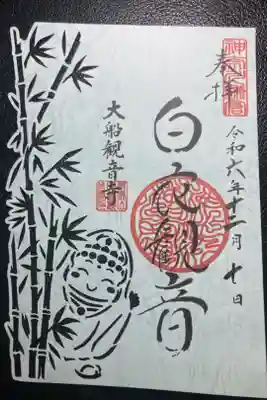 奉拝
令和六年十二月十日
白衣観音
大船観音寺